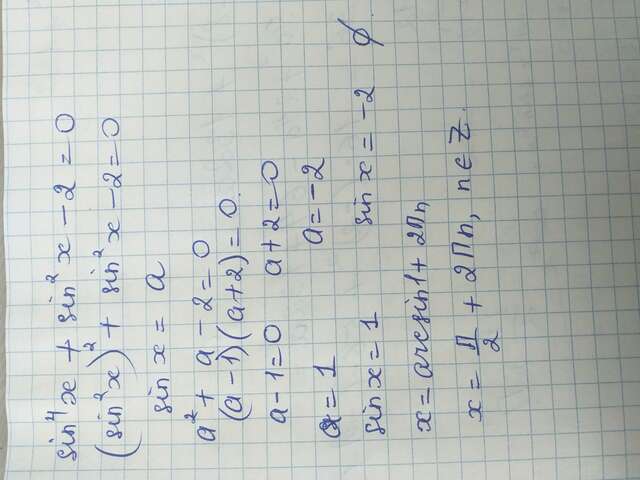 sin⁴x + sin²x − 2 = 0
(sin²x)² + sin²x − 2 = 0
sin x = a
a² + a − 2 = 0
(a − 1)(a + 2) = 0.
a − 1 = 0 a + 2 = 0
a = 1 a = −2
sin x = 1 sin x = −2 ∅
x = arcsin1 + 2Пn
x = П/2 + 2Пn, n ∈ Z.